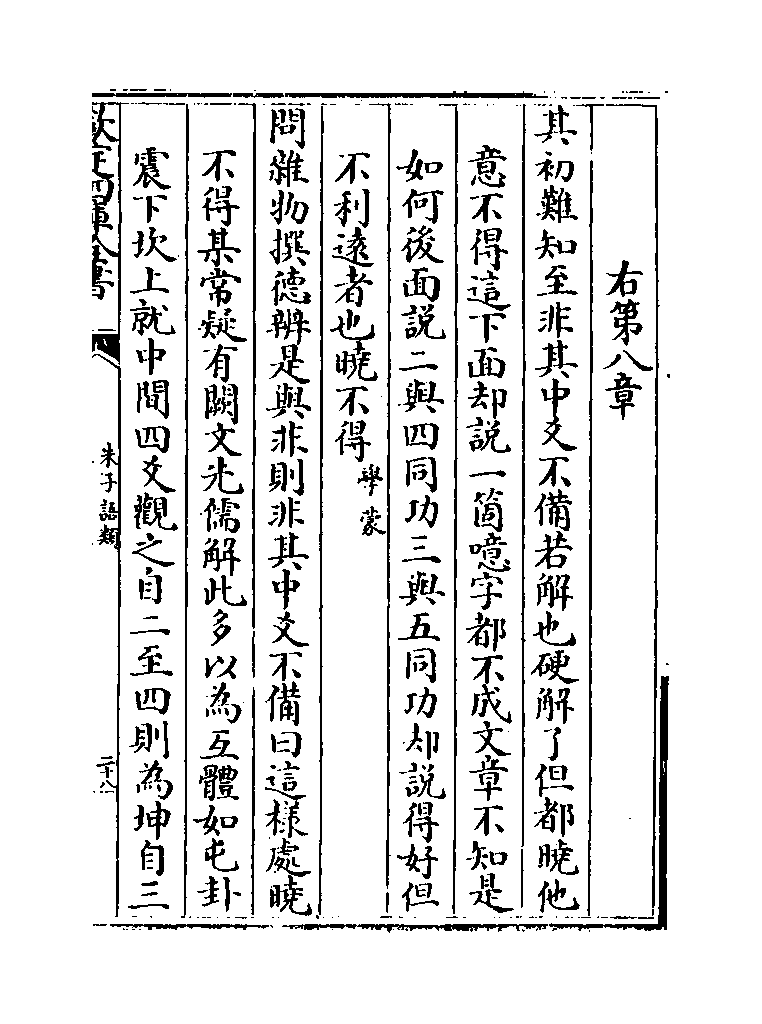 右第八章
其初難知至非其中爻不備若解也硬解了但都曉他
意不得這下面却說一箇噫字都不成文章不知是
如何後面說二與四同功三與五同功却說得好但
不利遠者也曉不得學蒙
問雜物撰德辨是與非則非其中爻不備曰這様處曉
不得某常疑有闕文先儒解此多以為互體如屯卦
震下坎上就中間四爻觀之自二至四則為坤自三
欽定四庫全書
朱子語類
二十八